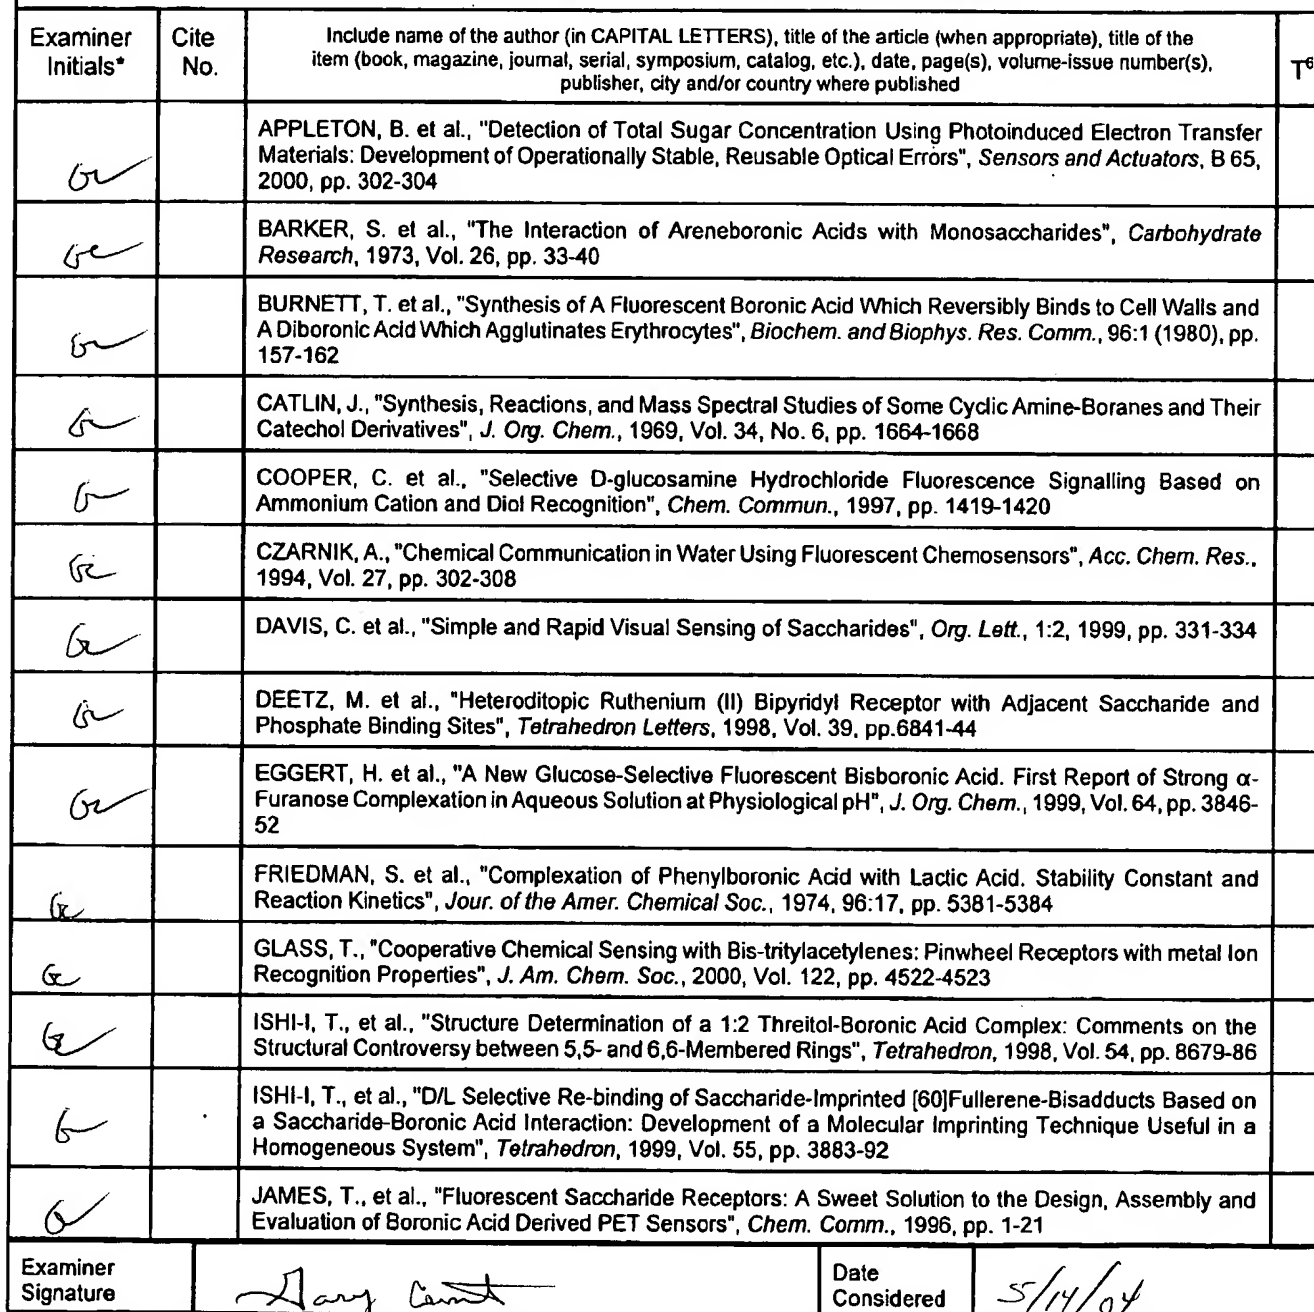 Examiner Initials* Cite No. Include name of the author (in CAPITAL LETTERS), title of the article (when appropriate), title of the
item (book, magazine, journal, serial, symposium, catalog, etc.), date, page(s), volume-issue number(s),
publisher, city and/or country where published T6
APPLETON, B. et al., "Detection of Total Sugar Concentration Using Photoinduced Electron Transfer
Materials: Development of Operationally Stable, Reusable Optical Errors", Sensors and Actuators, B 65,
2000, pp. 302-304
BARKER, S. et al., "The Interaction of Areneboronic Acids with Monosaccharides", Carbohydrate
Research, 1973, Vol. 26, pp. 33-40
BURNETT, T. et al., "Synthesis of A Fluorescent Boronic Acid Which Reversibly Binds to Cell Walls and
A Diboronic Acid Which Agglutinates Erythrocytes", Biochem. and Biophys. Res. Comm., 96:1 (1980), pp.
157-162
CATLIN, J., "Synthesis, Reactions, and Mass Spectral Studies of Some Cyclic Amine-Boranes and Their
Catechol Derivatives", J. Org. Chem., 1969, Vol. 34, No. 6, pp. 1664-1668
COOPER, C. et al., "Selective D-glucosamine Hydrochloride Fluorescence Signalling Based on
Ammonium Cation and Diol Recognition", Chem. Commun., 1997, pp. 1419-1420
CZARNIK, A., "Chemical Communication in Water Using Fluorescent Chemosensors", Acc. Chem. Res.,
1994, Vol. 27, pp. 302-308
DAVIS, C. et al., "Simple and Rapid Visual Sensing of Saccharides", Org. Lett., 1:2, 1999, pp. 331-334
DEETZ, M. et al., "Heteroditopic Ruthenium (II) Bipyridyl Receptor with Adjacent Saccharide and
Phosphate Binding Sites", Tetrahedron Letters, 1998, Vol. 39, pp.6841-44
EGGERT, H. et al., "A New Glucose-Selective Fluorescent Bisboronic Acid. First Report of Strong α-
Furanose Complexation in Aqueous Solution at Physiological pH", J. Org. Chem., 1999, Vol. 64, pp. 3846-
52
FRIEDMAN, S. et al., "Complexation of Phenylboronic Acid with Lactic Acid. Stability Constant and
Reaction Kinetics", Jour. of the Amer. Chemical Soc., 1974, 96:17, pp. 5381-5384
GLASS, T., "Cooperative Chemical Sensing with Bis-tritylacetylenes: Pinwheel Receptors with metal Ion
Recognition Properties", J. Am. Chem. Soc., 2000, Vol. 122, pp. 4522-4523
ISHI-I, T., et al., "Structure Determination of a 1:2 Threitol-Boronic Acid Complex: Comments on the
Structural Controversy between 5,5- and 6,6-Membered Rings", Tetrahedron, 1998, Vol. 54, pp. 8679-86
ISHI-I, T., et al., "D/L Selective Re-binding of Saccharide-Imprinted [60]Fullerene-Bisadducts Based on
a Saccharide-Boronic Acid Interaction: Development of a Molecular Imprinting Technique Useful in a
Homogeneous System", Tetrahedron, 1999, Vol. 55, pp. 3883-92
JAMES, T., et al., "Fluorescent Saccharide Receptors: A Sweet Solution to the Design, Assembly and
Evaluation of Boronic Acid Derived PET Sensors", Chem. Comm., 1996, pp. 1-21
Examiner Signature Gary Date Considered 5/14/04